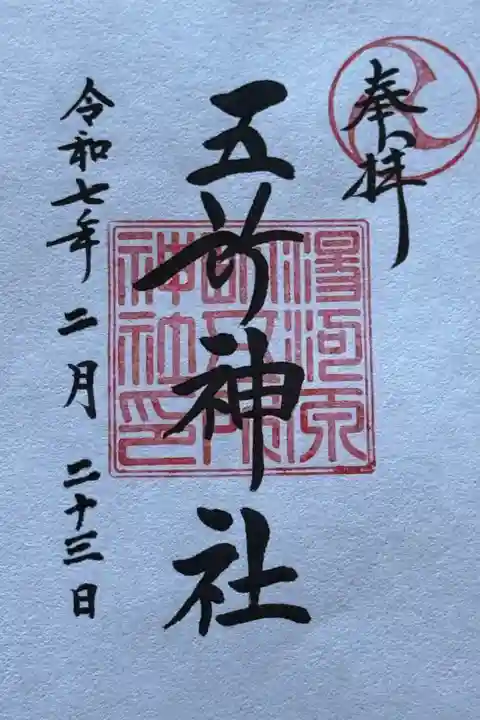 奉拝
五所神社
湯河原
五所
神社印
令和七年 二月 二十三日